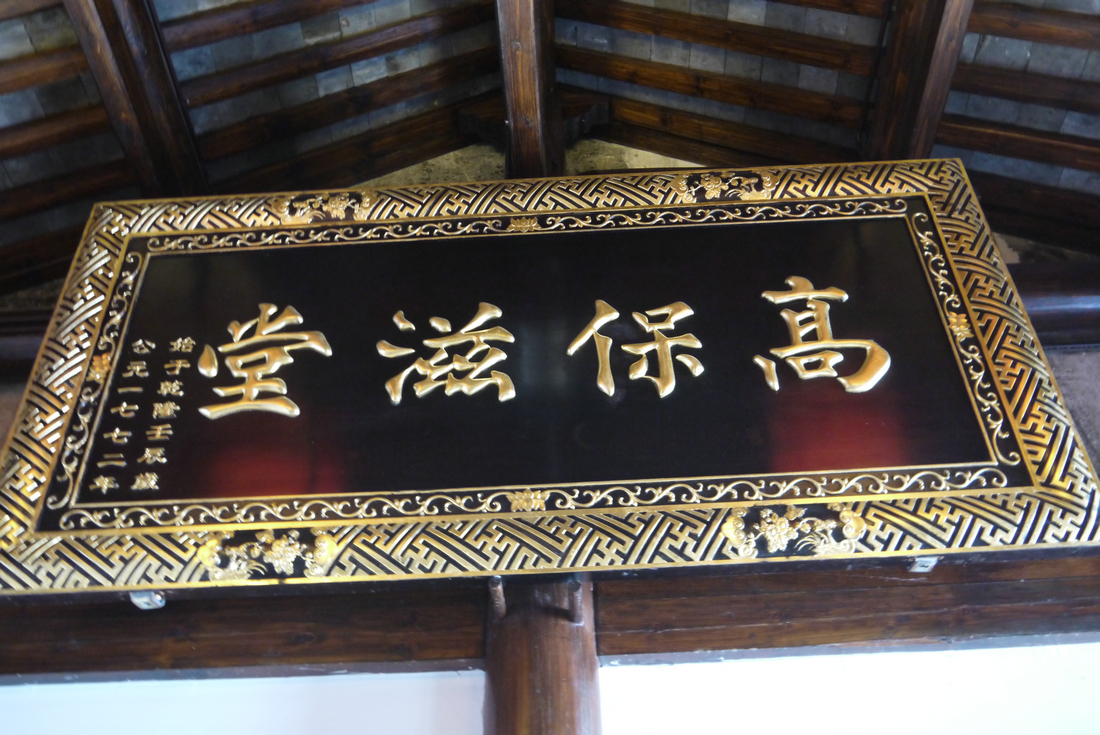 高保滋堂
始于乾隆壬辰歲
公元一七七二年